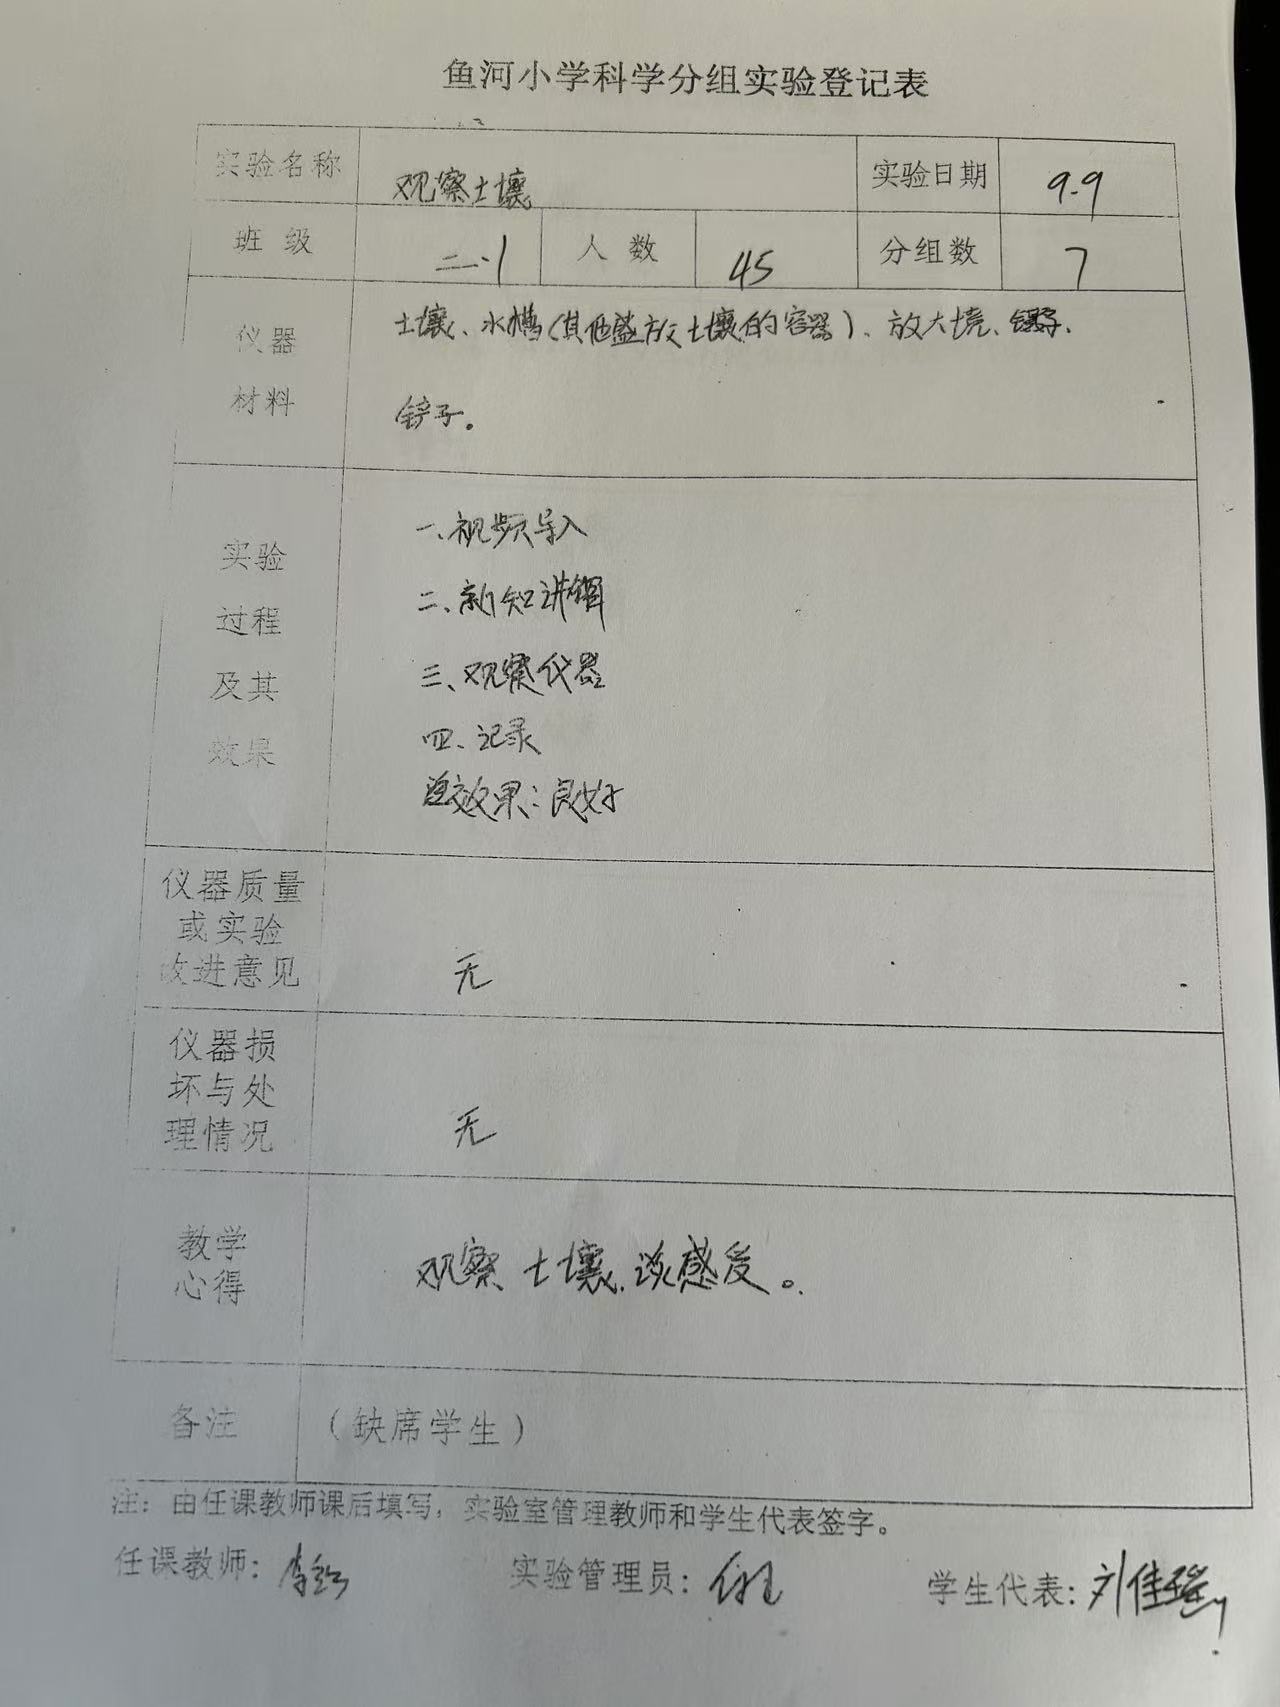 鱼河小学科学分组实验登记表
实验名称 观察土壤 实验日期 9.9
班级 二.1 人数 45 分组数 7
仪器材料 土壤、水槽(其他盛放土壤的容器)、放大镜、镊子、
铲子。
实验过程及其效果
一、视频导入
二、新知讲解
三、观察仪器
四、记录
效果:良好
仪器质量或实验改进意见 无
仪器损坏与处理情况 无
教学心得 观察土壤,谈感受。
备注 (缺席学生)
注:由任课教师课后填写,实验室管理教师和学生代表签字。
任课教师: 实验管理员: 学生代表:刘佳瑶